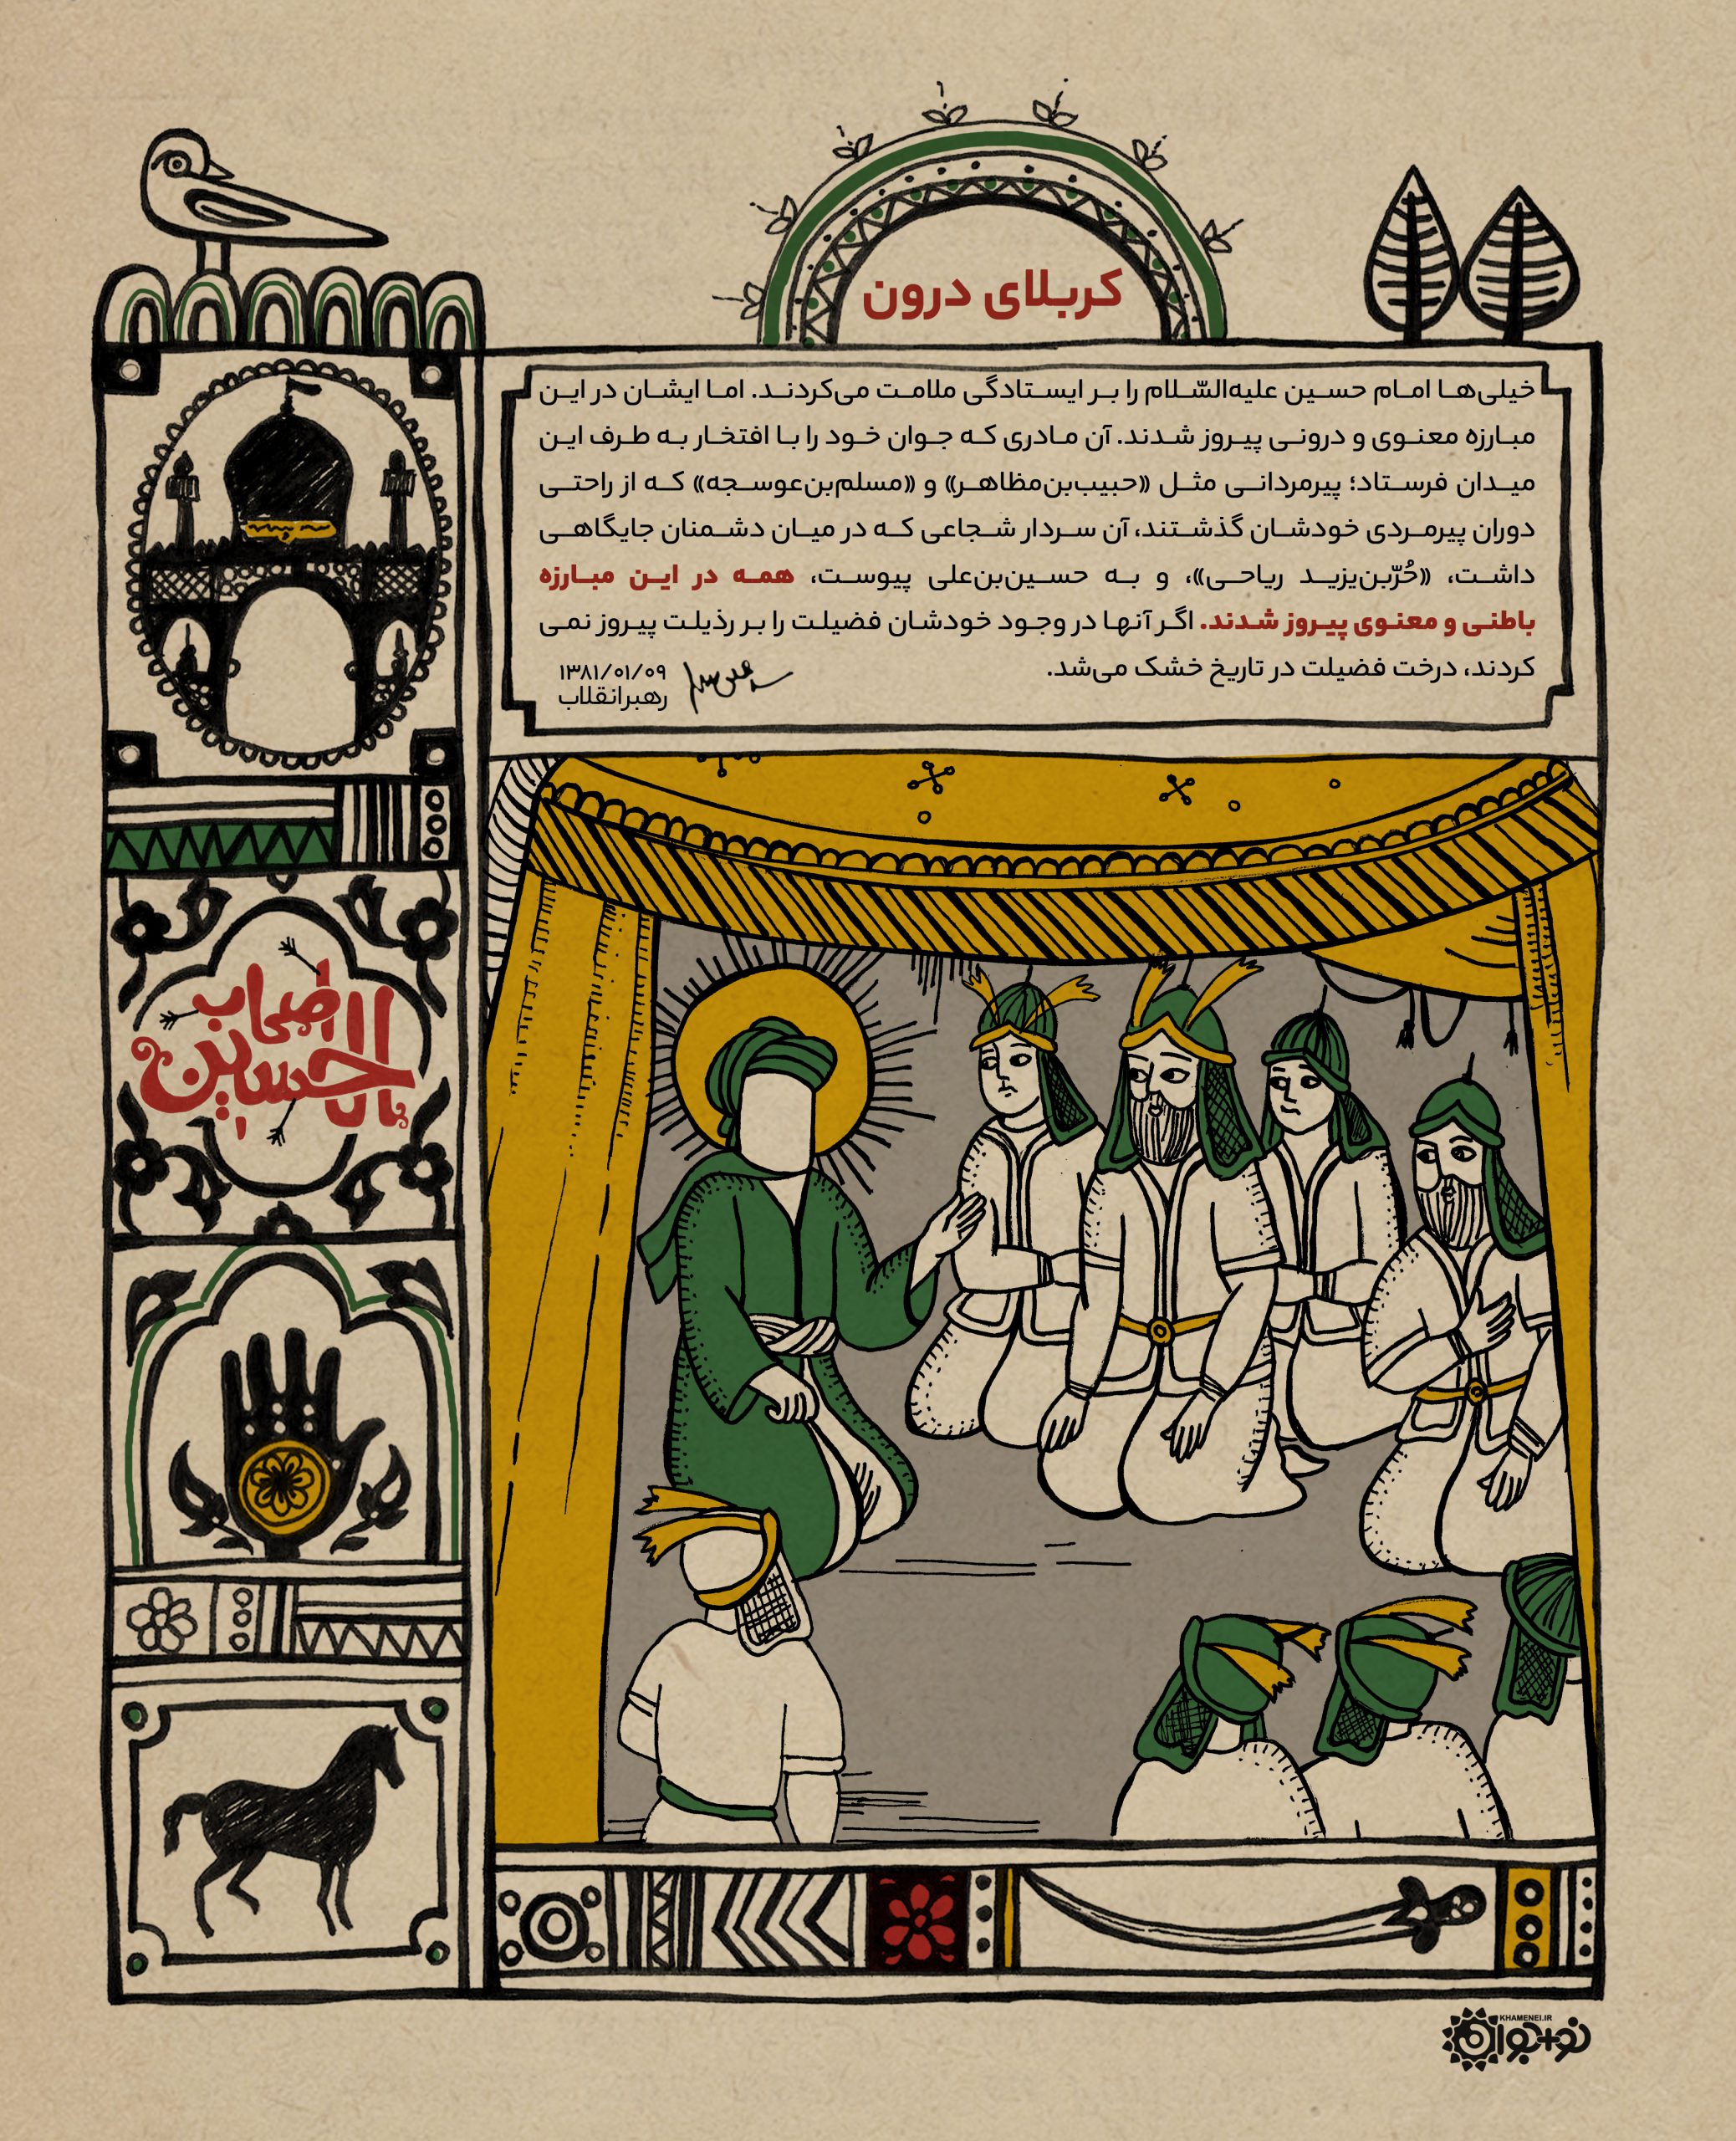 کربلای درون
خیلی‌ها امام حسین علیه‌السّلام را بر ایستادگی ملامت می‌کردند. اما ایشان در این
مبارزه معنوی و درونی پیروز شدند. آن مادری که جوان خود را با افتخار به طرف این
میدان فرستاد؛ پیرمردانی مثل «حبیب‌بن‌مظاهر» و «مسلم‌بن‌عوسجه» که از راحتی
دوران پیرمردی خودشان گذشتند، آن سردار شجاعی که در میان دشمنان جایگاهی
داشت، «حُرّبن‌یزید ریاحی»، و به حسین‌بن‌علی پیوست، همه در این مبارزه
باطنی و معنوی پیروز شدند. اگر آنها در وجود خودشان فضیلت را بر رذیلت پیروز نمی
کردند، درخت فضیلت در تاریخ خشک می‌شد.
۱۳۸۱/۰۱/۰۹
رهبرانقلاب
اصحاب
الحسین
KHAMENEI.IR
نو+جوان